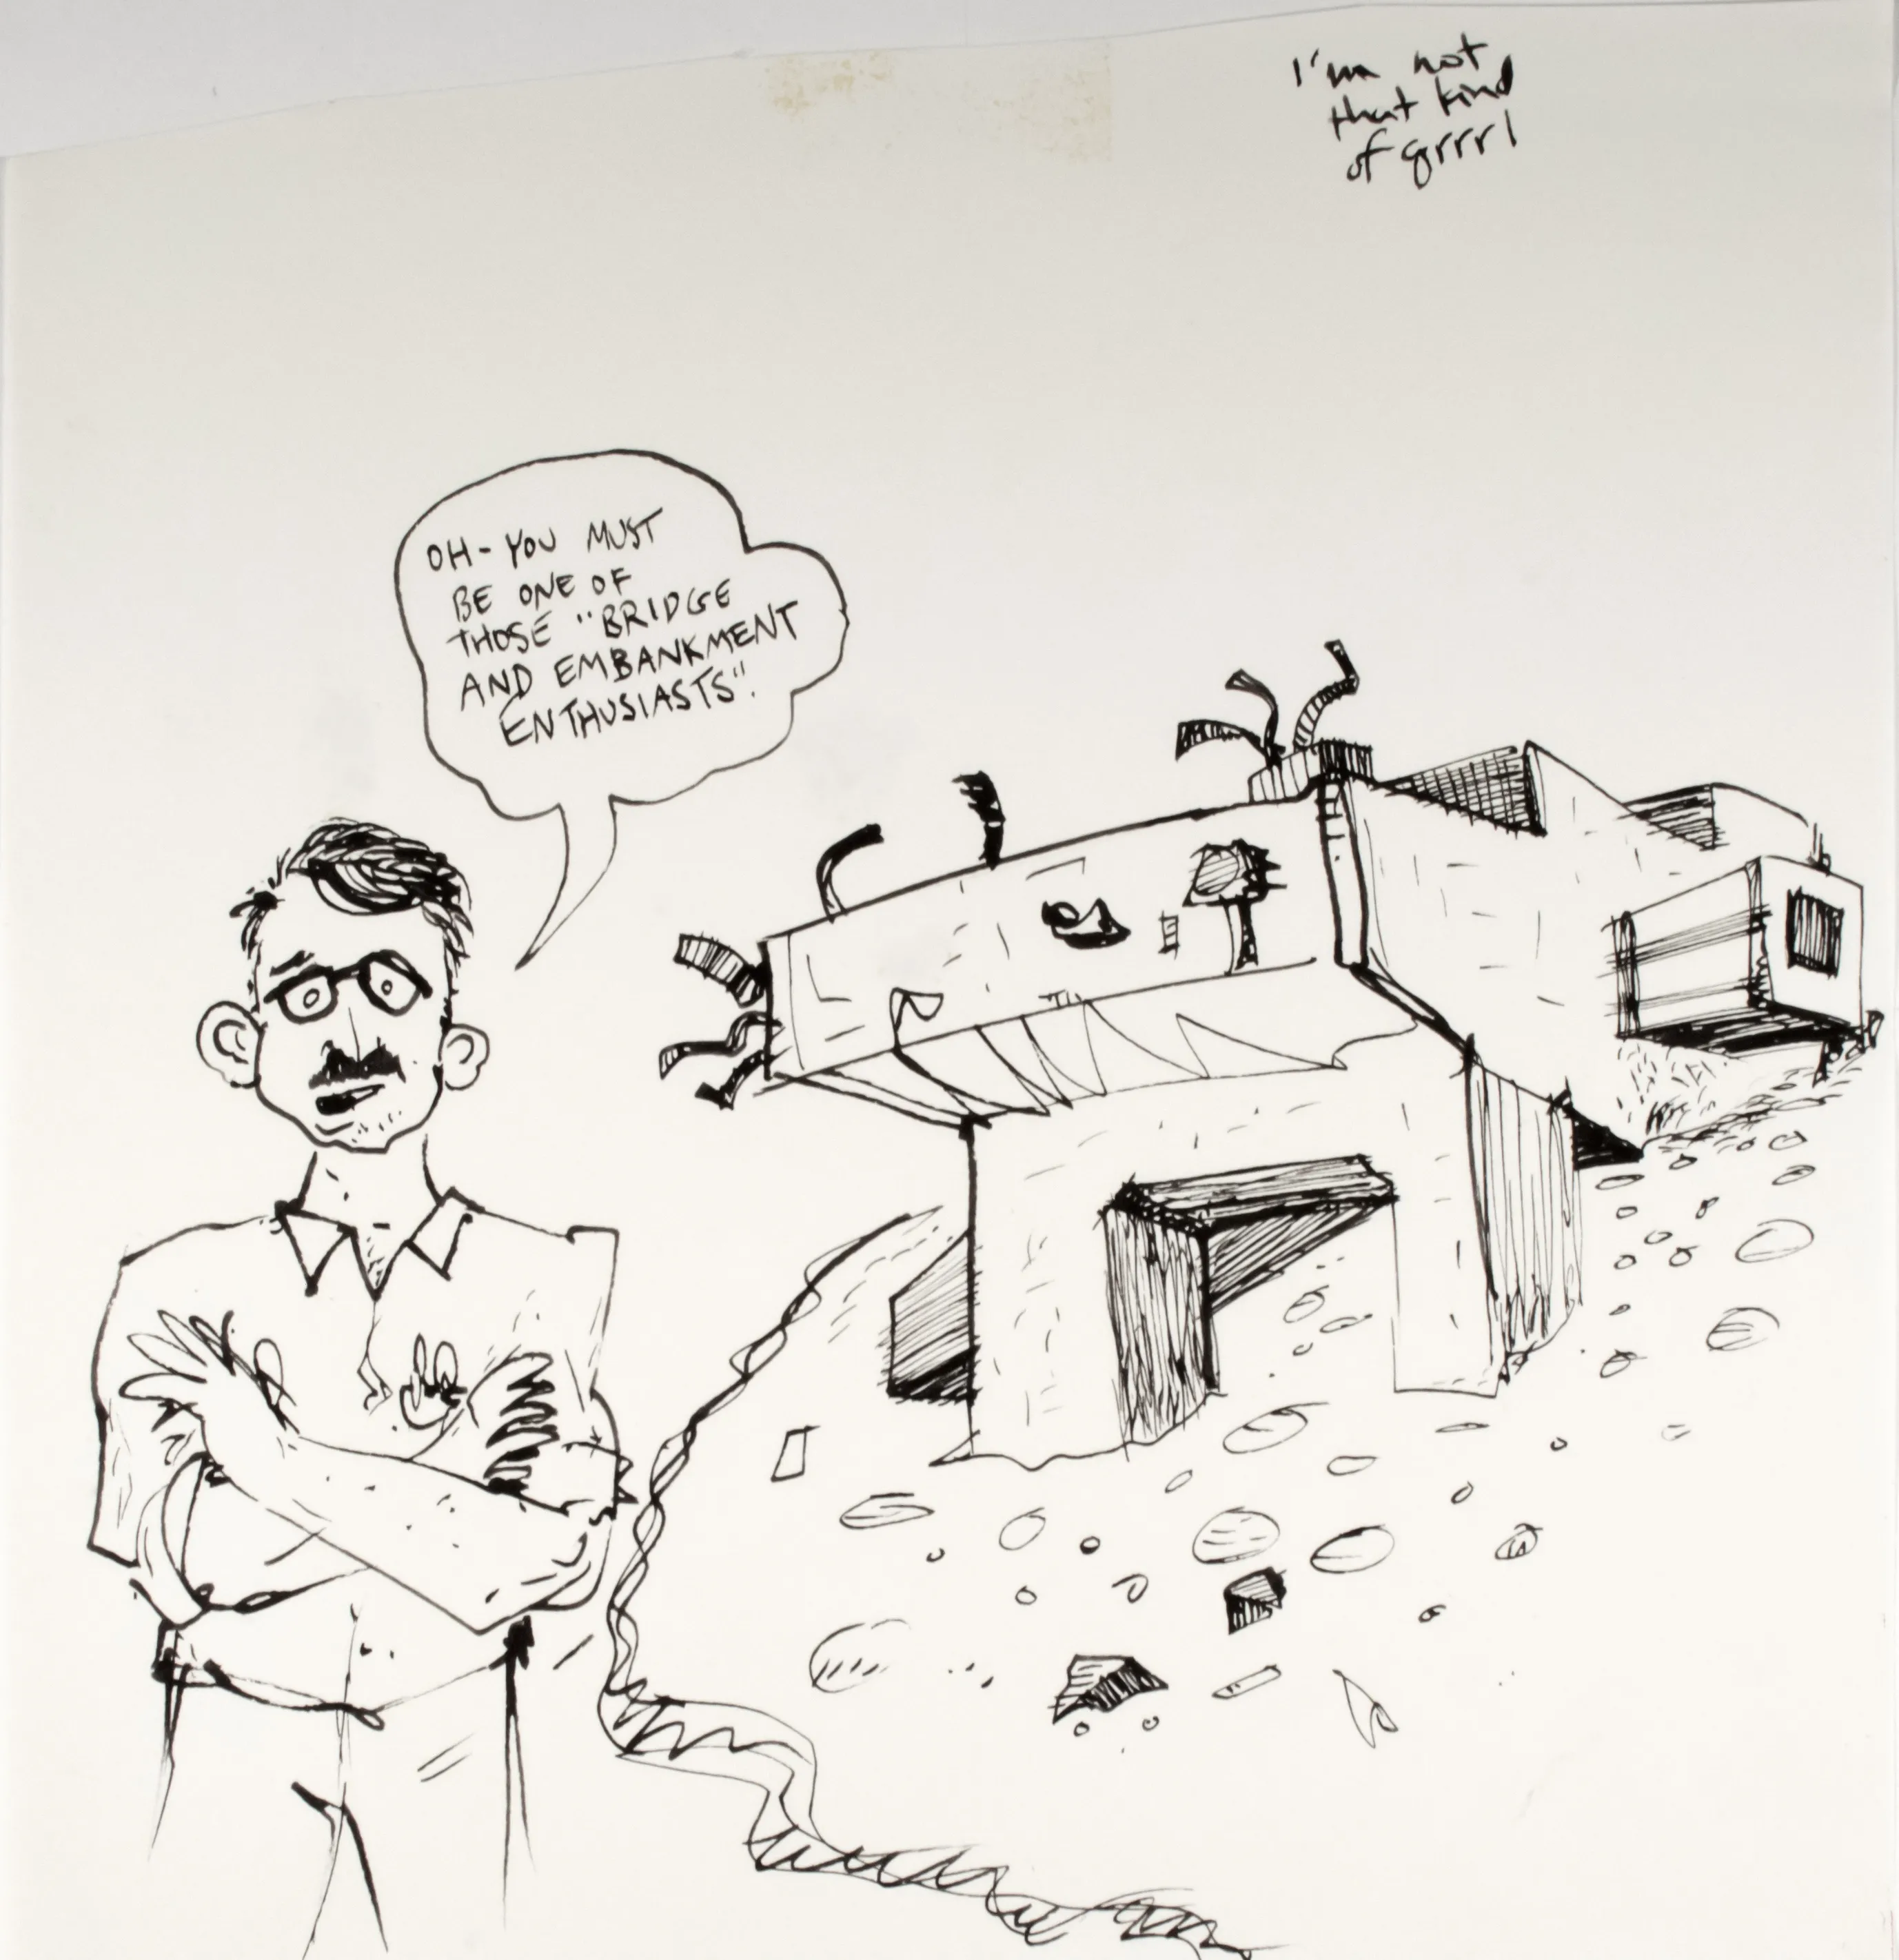 I'm not
that kind
of grrrl
OH- YOU MUST
BE ONE OF
THOSE "BRIDGE
AND EMBANKMENT
ENTHUSIASTS".